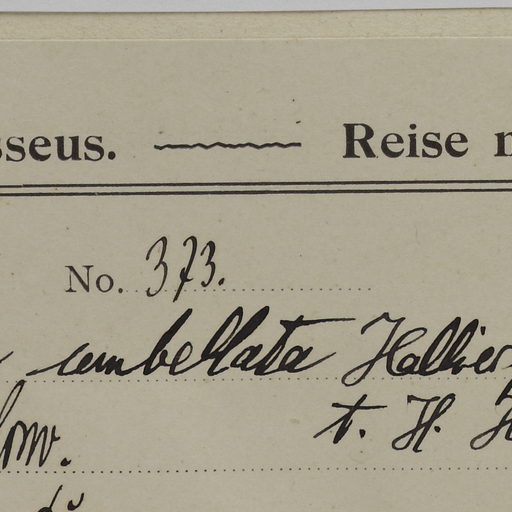 sseus. Reise
No. 373.
umbellata Hallier
t. H.